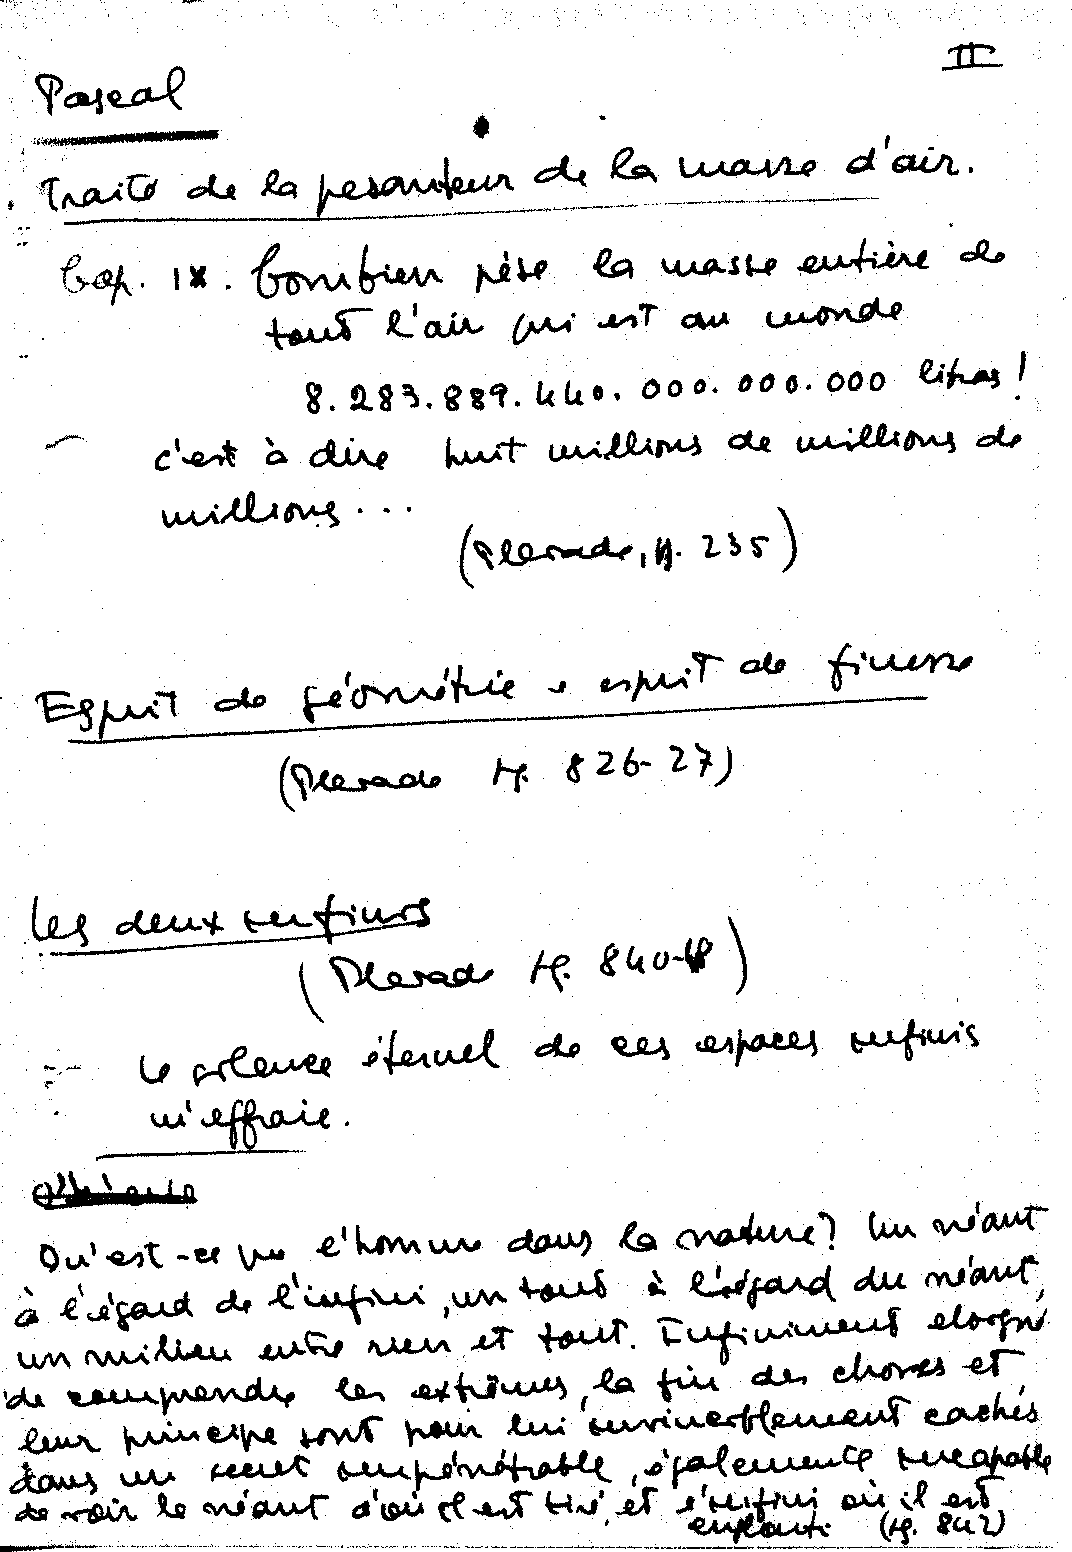 II
Pascal
Traité de la pesanteur de la masse d'air.
Cap. IX. Combien pèse la masse entière de
tout l'air qui est au monde
8.283.889.440.000.000.000 litras!
c'est à dire huit millions de millions de
millions...
(Pleiade, p. 235)
Esprit de géométrie e esprit de finesse
(Pleiade pg. 826-27)
Les deux infinis
(Pleiade pg. 840-48)
Le silence éternel de ces espaces infinis
m'effraie.
Qu'est-ce que l'homme dans la nature? Un néant
à l'égard de l'infini, un tout à l'égard du néant,
un milieu entre rien et tout. Infiniment eloigné
de comprendre les extrêmes, la fin des choses et
leur principe sont pour lui invinciblement cachés
dans un secret impénétrable, également incapable
de voir le néant d'où il est tiré, et l'infini où il est
englouti (pg. 842)